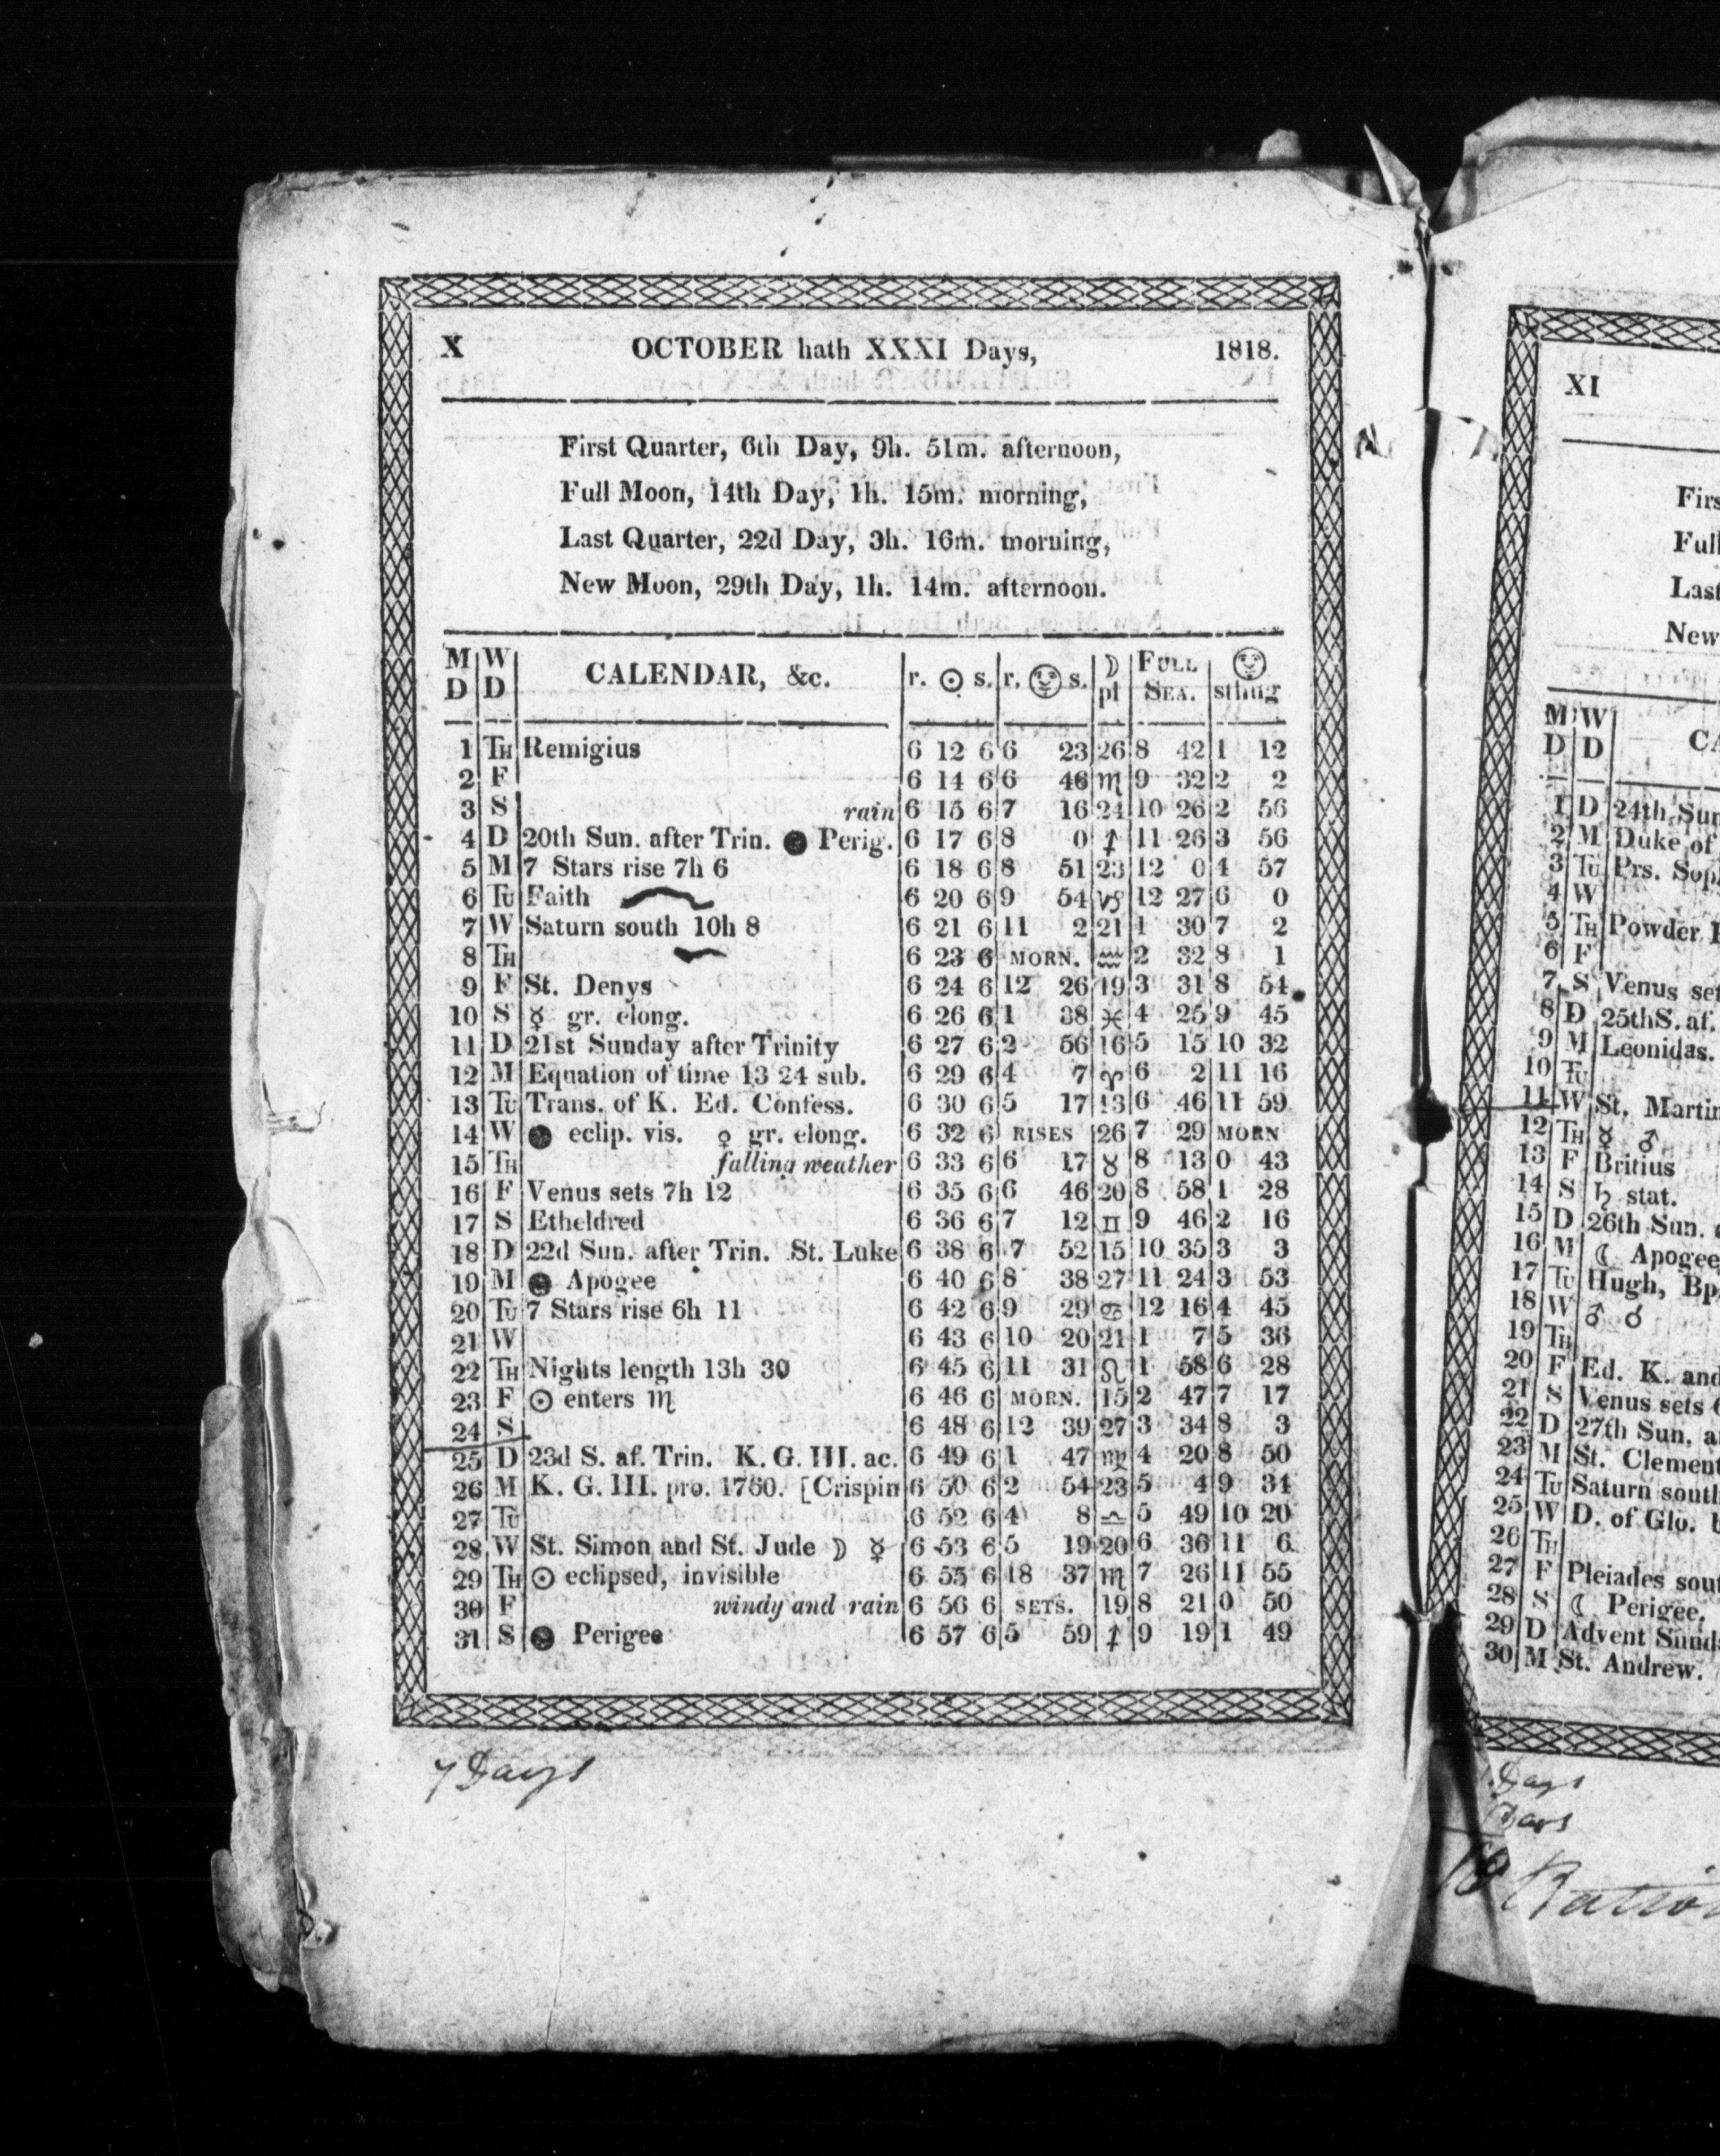 X OCTOBER hath XXXI Days, 1818.
First Quarter, 6th Day, 9h. 51m. afternoon,
Full Moon, 14th Day, 1h. 15m. morning,
Last Quarter, 22d Day, 3h. 16m. morning,
New Moon, 29th Day, 1h. 14m. afternoon.
M D W D CALENDAR, &c. r. ☉ s. r. s. ☽ pl FULL SEA. sthng
1 TH Remigius 6 12 6 6 23 26 8 42 1 12
2 F 6 14 6 6 46 ♏ 9 32 2 2
3 S rain 6 15 6 7 16 24 10 26 2 56
4 D 20th Sun. after Trin. ● Perig. 6 17 6 8 0 ♐ 11 26 3 56
5 M 7 Stars rise 7h 6 6 18 6 8 51 23 12 0 4 57
6 TU Faith 6 20 6 9 54 ♑ 12 27 6 0
7 W Saturn south 10h 8 6 21 6 11 2 21 1 30 7 2
8 TH 6 23 6 MORN. ♒ 2 32 8 1
9 F St. Denys 6 24 6 12 26 19 3 31 8 54
10 S ☿ gr. elong. 6 26 6 1 38 ♓ 4 25 9 45
11 D 21st Sunday after Trinity 6 27 6 2 56 16 5 15 10 32
12 M Equation of time 13 24 sub. 6 29 6 4 7 ♈ 6 2 11 16
13 TU Trans. of K. Ed. Confess. 6 30 6 5 17 13 6 46 11 59
14 W ● eclip. vis. ♀ gr. elong. 6 32 6 RISES 26 7 29 MORN
15 TH falling weather 6 33 6 6 17 ♉ 8 13 0 43
16 F Venus sets 7h 12 6 35 6 6 46 20 8 58 1 28
17 S Etheldred 6 36 6 7 12 ♊ 9 46 2 16
18 D 22d Sun. after Trin. St. Luke 6 38 6 7 52 15 10 35 3 3
19 M ● Apogee 6 40 6 8 38 27 11 24 3 53
20 TU 7 Stars rise 6h 11 6 42 6 9 29 ♋ 12 16 4 45
21 W 6 43 6 10 20 21 1 7 5 36
22 TH Nights length 13h 30 6 45 6 11 31 ♌ 1 58 6 28
23 F ☉ enters ♏ 6 46 6 MORN. 15 2 47 7 17
24 S 6 48 6 12 39 27 3 34 8 3
25 D 23d S. af. Trin. K. G. III. ac. 6 49 6 1 47 ♍ 4 20 8 50
26 M K. G. III. pro. 1760. [Crispin 6 50 6 2 54 23 5 4 9 34
27 TU 6 52 6 4 8 ♎ 5 49 10 20
28 W St. Simon and St. Jude ☽ ☿ 6 53 6 5 19 20 6 36 11 6
29 TH ☉ eclipsed, invisible 6 55 6 18 37 ♏ 7 26 11 55
30 F windy and rain 6 56 6 SETS. 19 8 21 0 50
31 S ● Perigee 6 57 6 5 59 ♐ 9 19 1 49
7 Days
XI
Firs
Full
Last
New
M D W D CA
1 D 24th Sun
2 M Duke of
3 TU Prs. Sop
4 W
5 TH Powder P
6 F
7 S Venus set
8 D 25th S. af.
9 M Leonidas.
10 TU
11 W St. Martin
12 TH ☿ ♂
13 F Britius
14 S ♄ stat.
15 D 26th Sun.
16 M ☾ Apogee
17 TU Hugh, Bp
18 W ♂ ☌
19 TH
20 F Ed. K. and
21 S Venus sets 6
22 D 27th Sun. a
23 M St. Clement
24 TU Saturn south
25 W D. of Glo. b
26 TH
27 F Pleiades sout
28 S ☾ Perigee.
29 D Advent Sund
30 M St. Andrew.
Days
Days